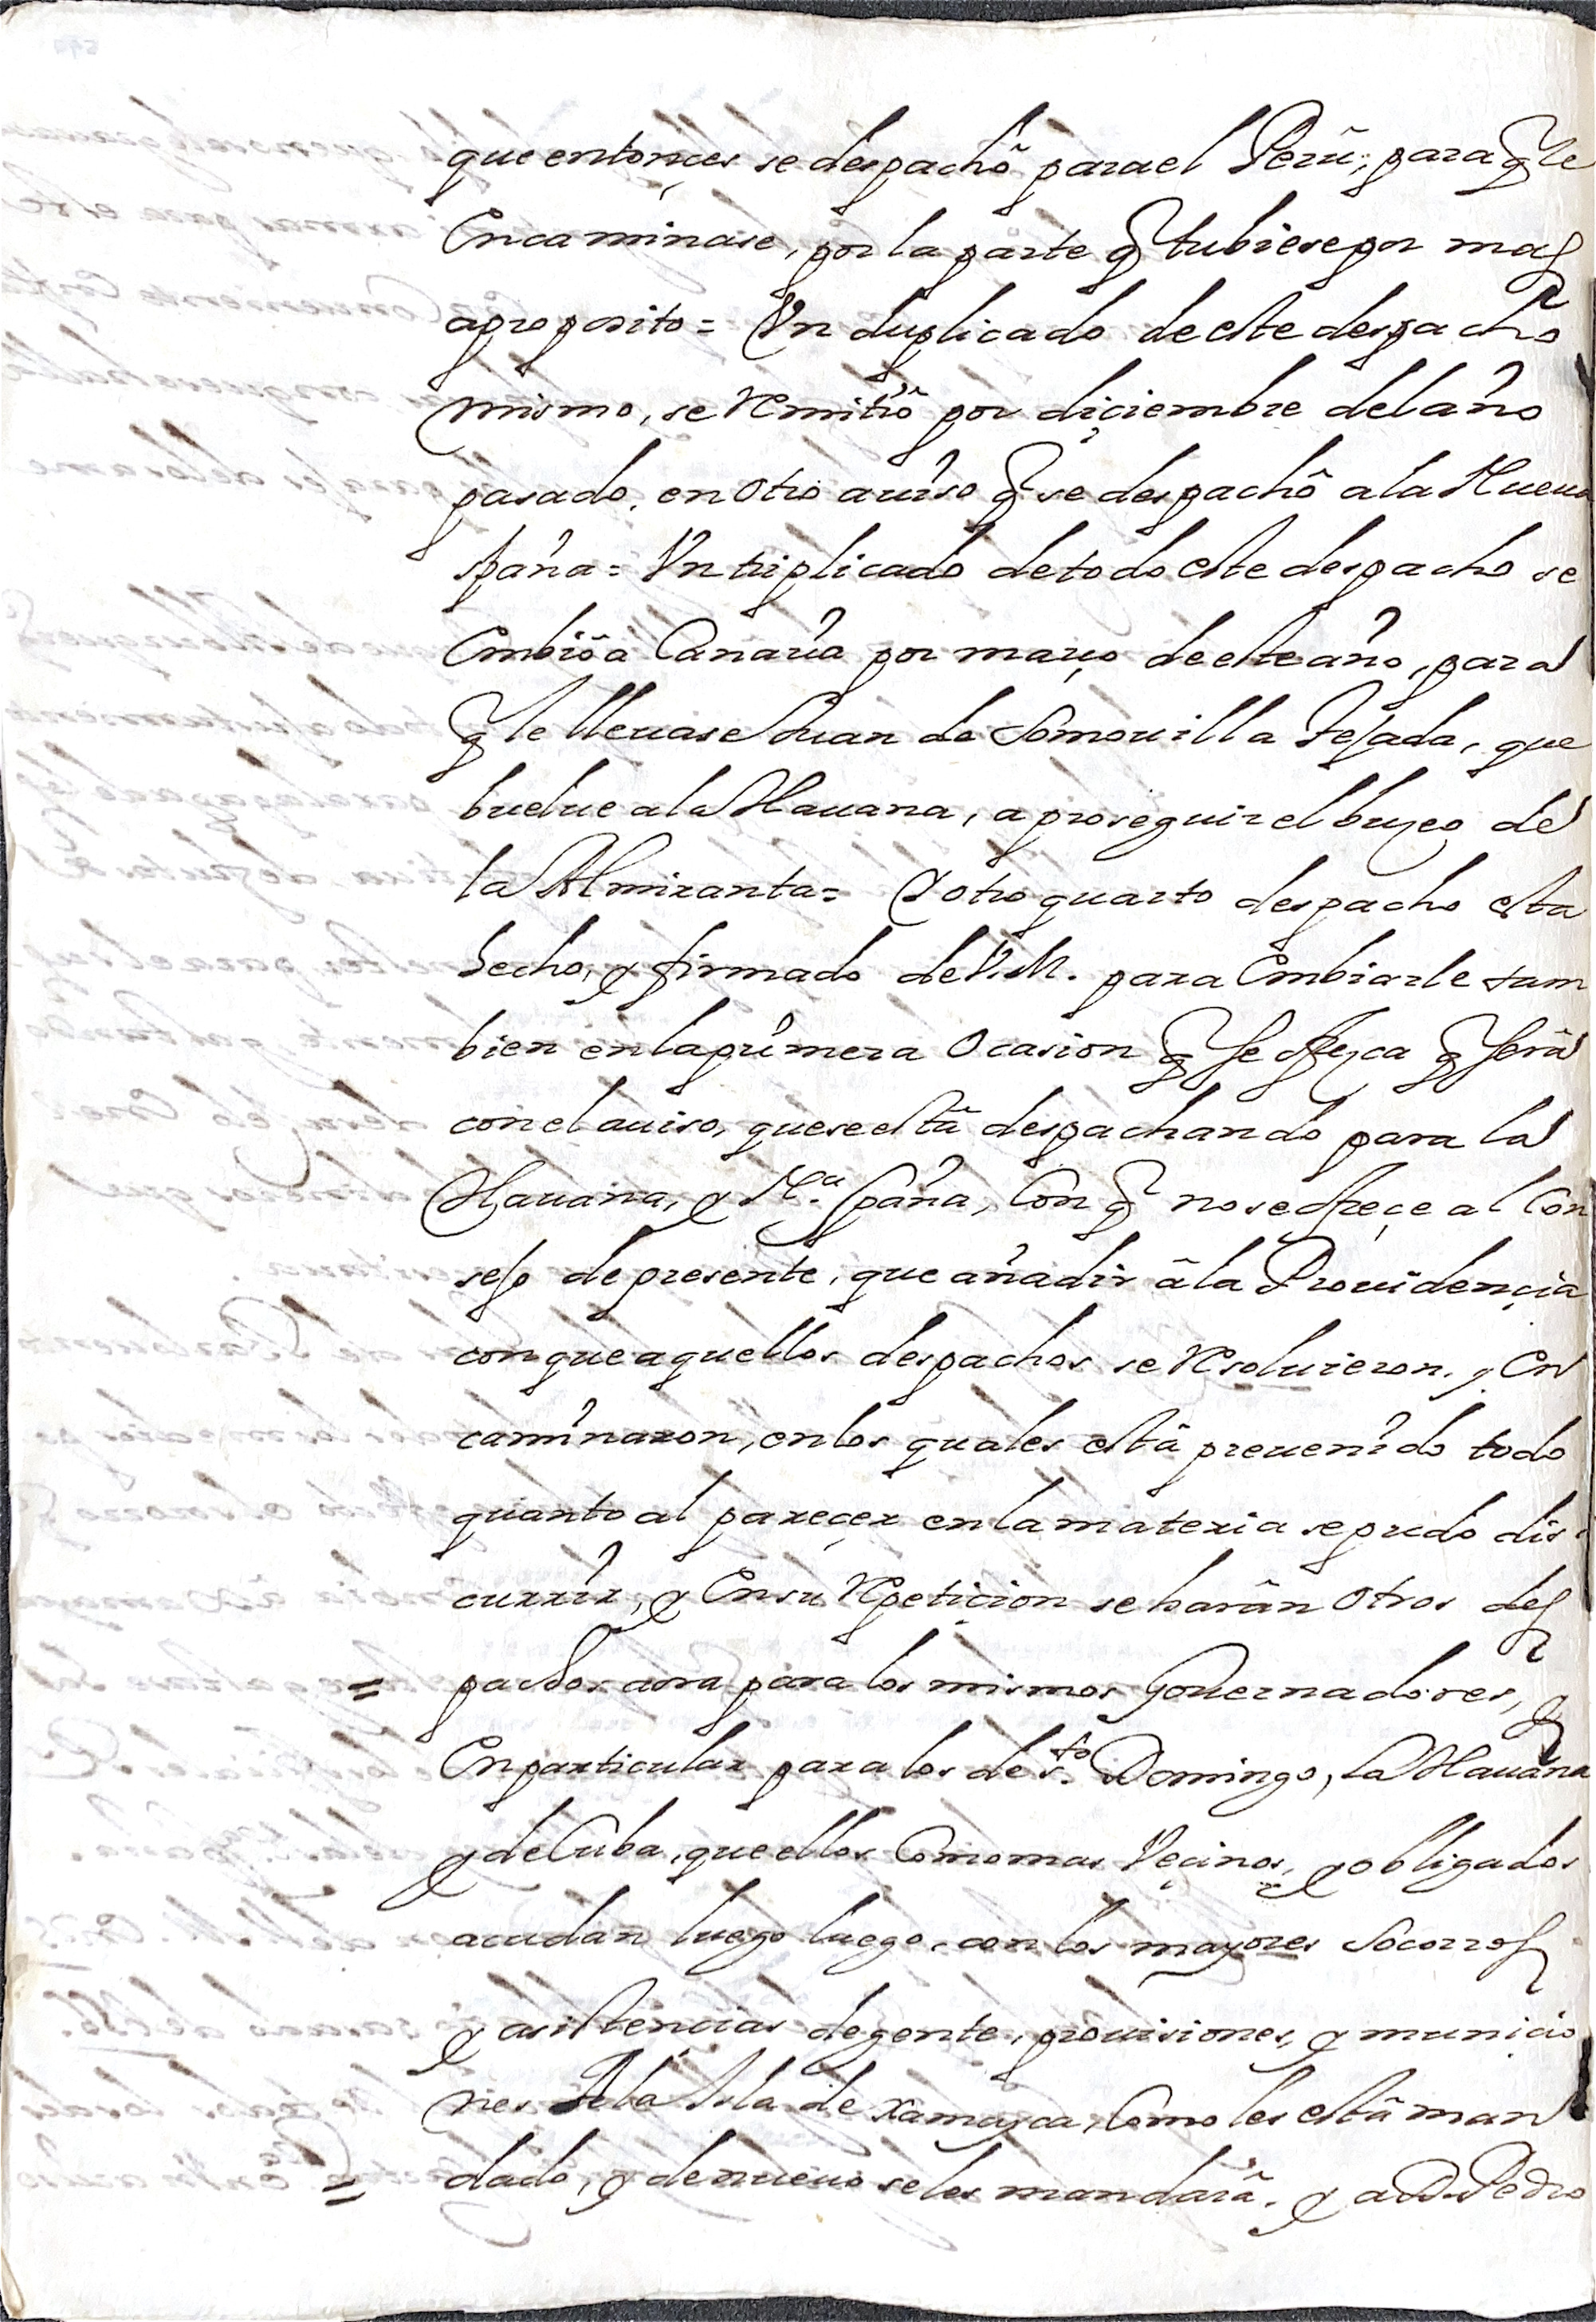 que entonçes se despachô para el Perû, para q̃ le
Encaminase, por la parte q̃ tubiese por mas
aproposito = Un duplicado de este despacho
mismo, se Remitiô por diçiembre del año
pasado, en otro auiso q̃ se despachô a la Nueua
spaña = Un triplicado de todo este despacho se
Embiô a Canaria por março de este año, para
q̃ le lleuase Juan de Somouilla Tejada, que
buelue a la Hauana, a proseguir el buzeo de
la Almiranta = Y otro quarto despacho esta
hecho, y firmado de V. M. para Embiarle tam
bien en la primera ocasion q̃ se ofrezca q̃ serâ
con el auiso, que se estâ despachando para la
Hauana, y N.ª spaña, Con q̃ no se ofreçe al Con
sejo de presente, que añadir â la Prouidençia
con que aquellos despachos se Resoluieron, y En
caminaron, en los quales estâ preuenido todo
quanto al pareçer en la materia se pudo dis
currir, y En su Repetiçion se harân otros des
= pachos aora para los mismos Gouernadores, y
En particular para los de s.to Domingo, la Hauana
y de Cuba, que ellos Como mas Veçinos, y obligados
acudan luego luego, con los mayores socorros
y asistencias de gente, prouisiones, y municio
nes A la Isla de xamayca, Como les estâ man
= dado, y de nueuo se les mandarâ, y a D. Pedro